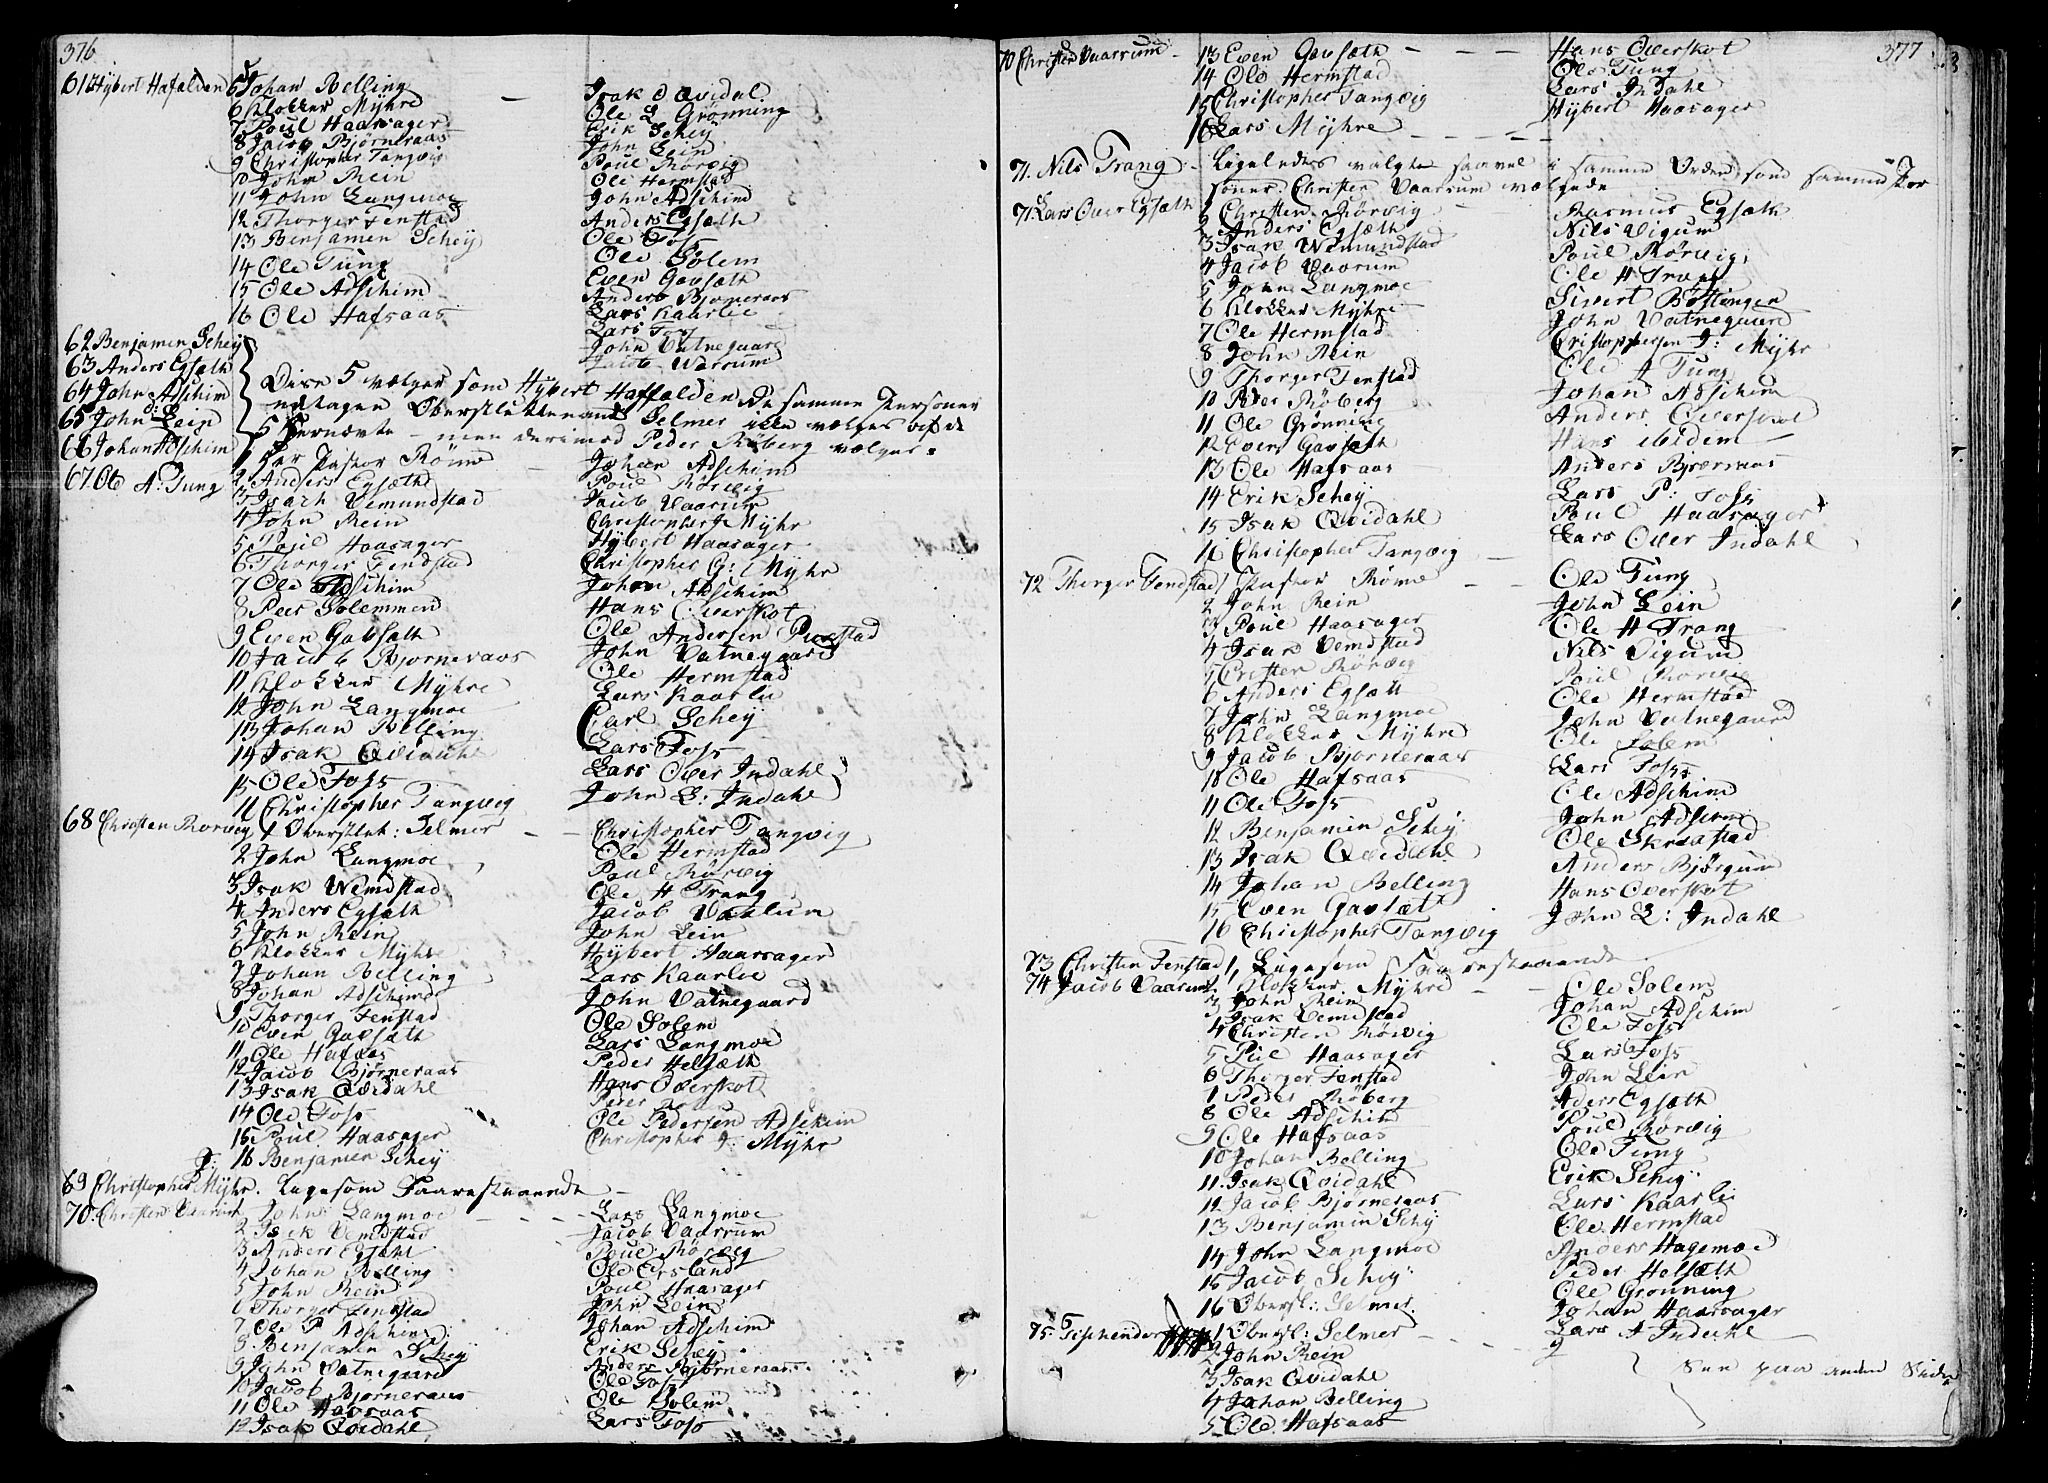 376
61 Hybert Hafalden 5 Johan Belling — Isak Qvidal
6 Klokker Myhre Ole L Grønning
7 Poul Haarsager Erik Schey
8 Jacob Bjørneraas John Lein
9 Christopher Tangvig Poul Rørvig
10 John Rein Ole Hermstad
11 John Langmoe John Adschim
12 Thorger Fenstad Anders Egsæth
13 Benjamen Schey Ole Foss
14 Ole Tung Ole Solem
15 Ole Adschim Even Gavsæth
16 Ole Hafsaas Anders Bjørneraas
Lars Kaarlie
62 Benjamen Schey Lars Foss
63 Anders Egsæth John Vatnegaard
64 John Adschim Jacob Warrum
65 John Lein Disse 5 vælger som Hybert Haffalden de samme Personer
66 Johan Adschim undtagen Oberstleutenand Selmer ikke vælges af de
5 Benævte — men derimod Peder Røberg vælges
67 Ole A: Tung 1 Hr Pastor Rømo — Johan Adschim
2 Anders Egsæth Poul Rørvig
3 Isach Vemundstad Jacob Vaarum
4 John Rein Christopher J Myhr
5 Poul Haarsager Hybert Haarsager
6 Thorger Fendstad Christopher G: Myhr
7 Ole Adschim Johan Adschim
8 Peer Solemmen Hans Overskot
9 Even Gavsæth Ole Andersen
10 Jacob Bjørneraas John Vatnegaard
11 Klokker Myhre Ole Hermstad
12 John Langmoe Lars Kaarlie
13 Johan Belling Carl Schey
14 Isak Qvidahl Lars Foss
15 Ole Foss Lars Over Indahl
16 Christopher Tangvig John L: Indahl
68 Christen Rørvig 1 Oberstlet: Selmer — Christopher Tangvig
2 John Langmoe Ole Hermstad
3 Isak Wemdstad Poul Rørvig
4 Anders Egsæth Ole H Trang
5 John Rein Jacob Vaarum
6 Klokker Myhre John Lein
7 Johan Belling Hybert Haarsager
8 Johan Adschimd Lars Kaarlie
9 Thorger Fenstad John Vatnegaard
10 Even Gavsæth Ole Solem
11 Ole Hafsaas Lars Langmoe
12 Jacob Bjørneraas Peder Helsæth
13 Isak Qvidahl Hans Overskot
14 Ole Foss Peter
15 Poul Haarsager Ole Pedersen Adschim
16 Benjamen Schey Christopher J: Myhr
69 Christopher J: Myhr. Ligesom Foarestaaende
70 Christen Vaarum John Langmoe — Lars Langmoe
2 Isak Vemdstad Jacob Vaarrum
3 Anders Egsæht Poul Rørvig
4 Johan Belling Ole Ersland
5 John Rein Poul Haarsager
6 Thorger Fenstad John Lein
7 Ole P Adschim Johan Adschim
8 Benjamin Schey Erik Schey
9 John Vatnegaard Anders Bjørneraas
10 Jacob Bjørneraas Ole Foss
11 Ole Hafsaas Ole Solem
12 Isak Qvidahl Lars Foss
377
70 Christen Vaarrum 13 Even Gavsæth — Hans Overskot
14 Ole Hermstad Ole Tung
15 Christopher Tangvig Lars Indahl
16 Lars Myhre — Hybert Haarsager
71. Nils Trang Ligeledes valgte saavel i samme Orden som samme Per
soner Christen Vaarrum valgede
71. Lars Over Egsæth 1 Christen Rørvig Rasmus Egsæth
2 Anders Egsæth Nils Vigum
3 Isak Wemundstad Poul Rørvig
4 Jacob Vaarum Ole H Trang
5 John Langmoe Sivert Bøstungen
6 Klokker Myhre John Vatnegaard
7 Ole Hermstad Cristophersen J: Myhr
8 John Rein Ole A Tung
9 Thorger Fenstad Johan Adschim
10 Peer Røberg Anders Overskot
11 Ole Grønning Hans Midem
12 Even Gavsæth Anders Bjørneraas
13 Ole Hafsaas Lars P: Foss
14 Erik Schey Poul Haarsager
15 Isak Qvidahl Lars Over Indahl
16 Christopher Tangvig
72 Thorger Fendstad 1 Pastor Rømo — Ole Tung
2 John Rein John Lein
3 Poul Haarsager Ole H Trang
4 Isak Vemdstad Nils Vigum
5 Cristen Rørvig Poul Rørvig
6 Anders Egsæth Ole Hermstad
7 John Langmoe John Vatnegaard
8 Klokker Myhre Ole Solem
9 Jacob Bjørneraas Lars Foss
10 Ole Hafsaas Ole Adschim
11 Ole Foss John Adschim
12 Benjamin Schey Ole Skrastad
13 Isak Qvidahl Anders Bjørgum
14 Johan Belling Hans Overskot
15 Even Gavsæth John L: Indahl
16 Christopher Tangvig
73 Christen Fenstad 1, Ligesom Foarestaaende
74 Jacob Vaarum 1. Klokker Myhre — Ole Solem
2 John Rein Johan Adschim
3 Isak Vemdstad Ole Foss
4 Christen Rørvig Lars Foss
5 Poul Haarsager John Lein
6 Thorger Fenstad Aders Egsæth
7 Peder Røberg Poul Rorvig
8 Ole Adschim Ole Tung
9 Ole Hafsaas Erik Schey
10 Johan Belling Lars Kaarlie
11. Isak Qvidahl Ole Hermstad
12 Jacob Bjørneraas Anders Hagemoe
13 Benjamin Schy Peder Helsæth
14 John Langmoe Ole Grønning
15 Jacob Schey Johan Haarsager
16 Obersl: Selmer Lars A Indahl
75. 1 Obersl: Selmer
2 John Rein See paa anden Side
3 Isak Qvidahl
4 Johan Belling
5 Ole Hafsaas